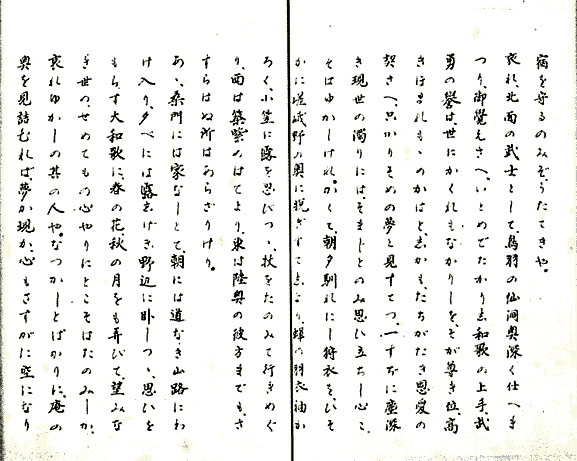 宿を守るのみぞうたてきや。
哀れ、北面の武士として、鳥羽の仙洞奥深く仕へまつり、
つり、御覚えさへ、いとめでたかりし和歌の上手、武
勇の誉は、世にかくれもなかりしを、そが尊き位、高
きほまれも、のかはと、しかも、たちがたき恩愛の
契さへ、只かりそめの夢と見すてつ、一すぢに塵深
き現世の濁りには、そまじとのみ思ひ立ちし心こ
そはゆかしけれ。かくて、朝夕馴れにし狩衣をひそ
かに嵯峨野の奥に脱ぎすてしより、蝉の羽衣袖か
ろく、小笠に露を忍びつゝ、杖をたのみて行きめぐ
り、西は築紫のはてより、東は陸奥の彼方までも、さ
すらはぬ所はあらざりけり。
あゝ、桑門には家なしとて、朝には道なき山路にわ
け入り、夕べには露しげき野辺に臥しつゝ、思ひを
もらす大和歌に、春の花、秋の月をも弄びて、望みな
き世の、せめてもの心やりにとこそはたのみしか、
哀れゆかしの其の人や。なつかしとばかりに、庵の
奥を見詰むれば、夢か現か、心もさすがに空になり